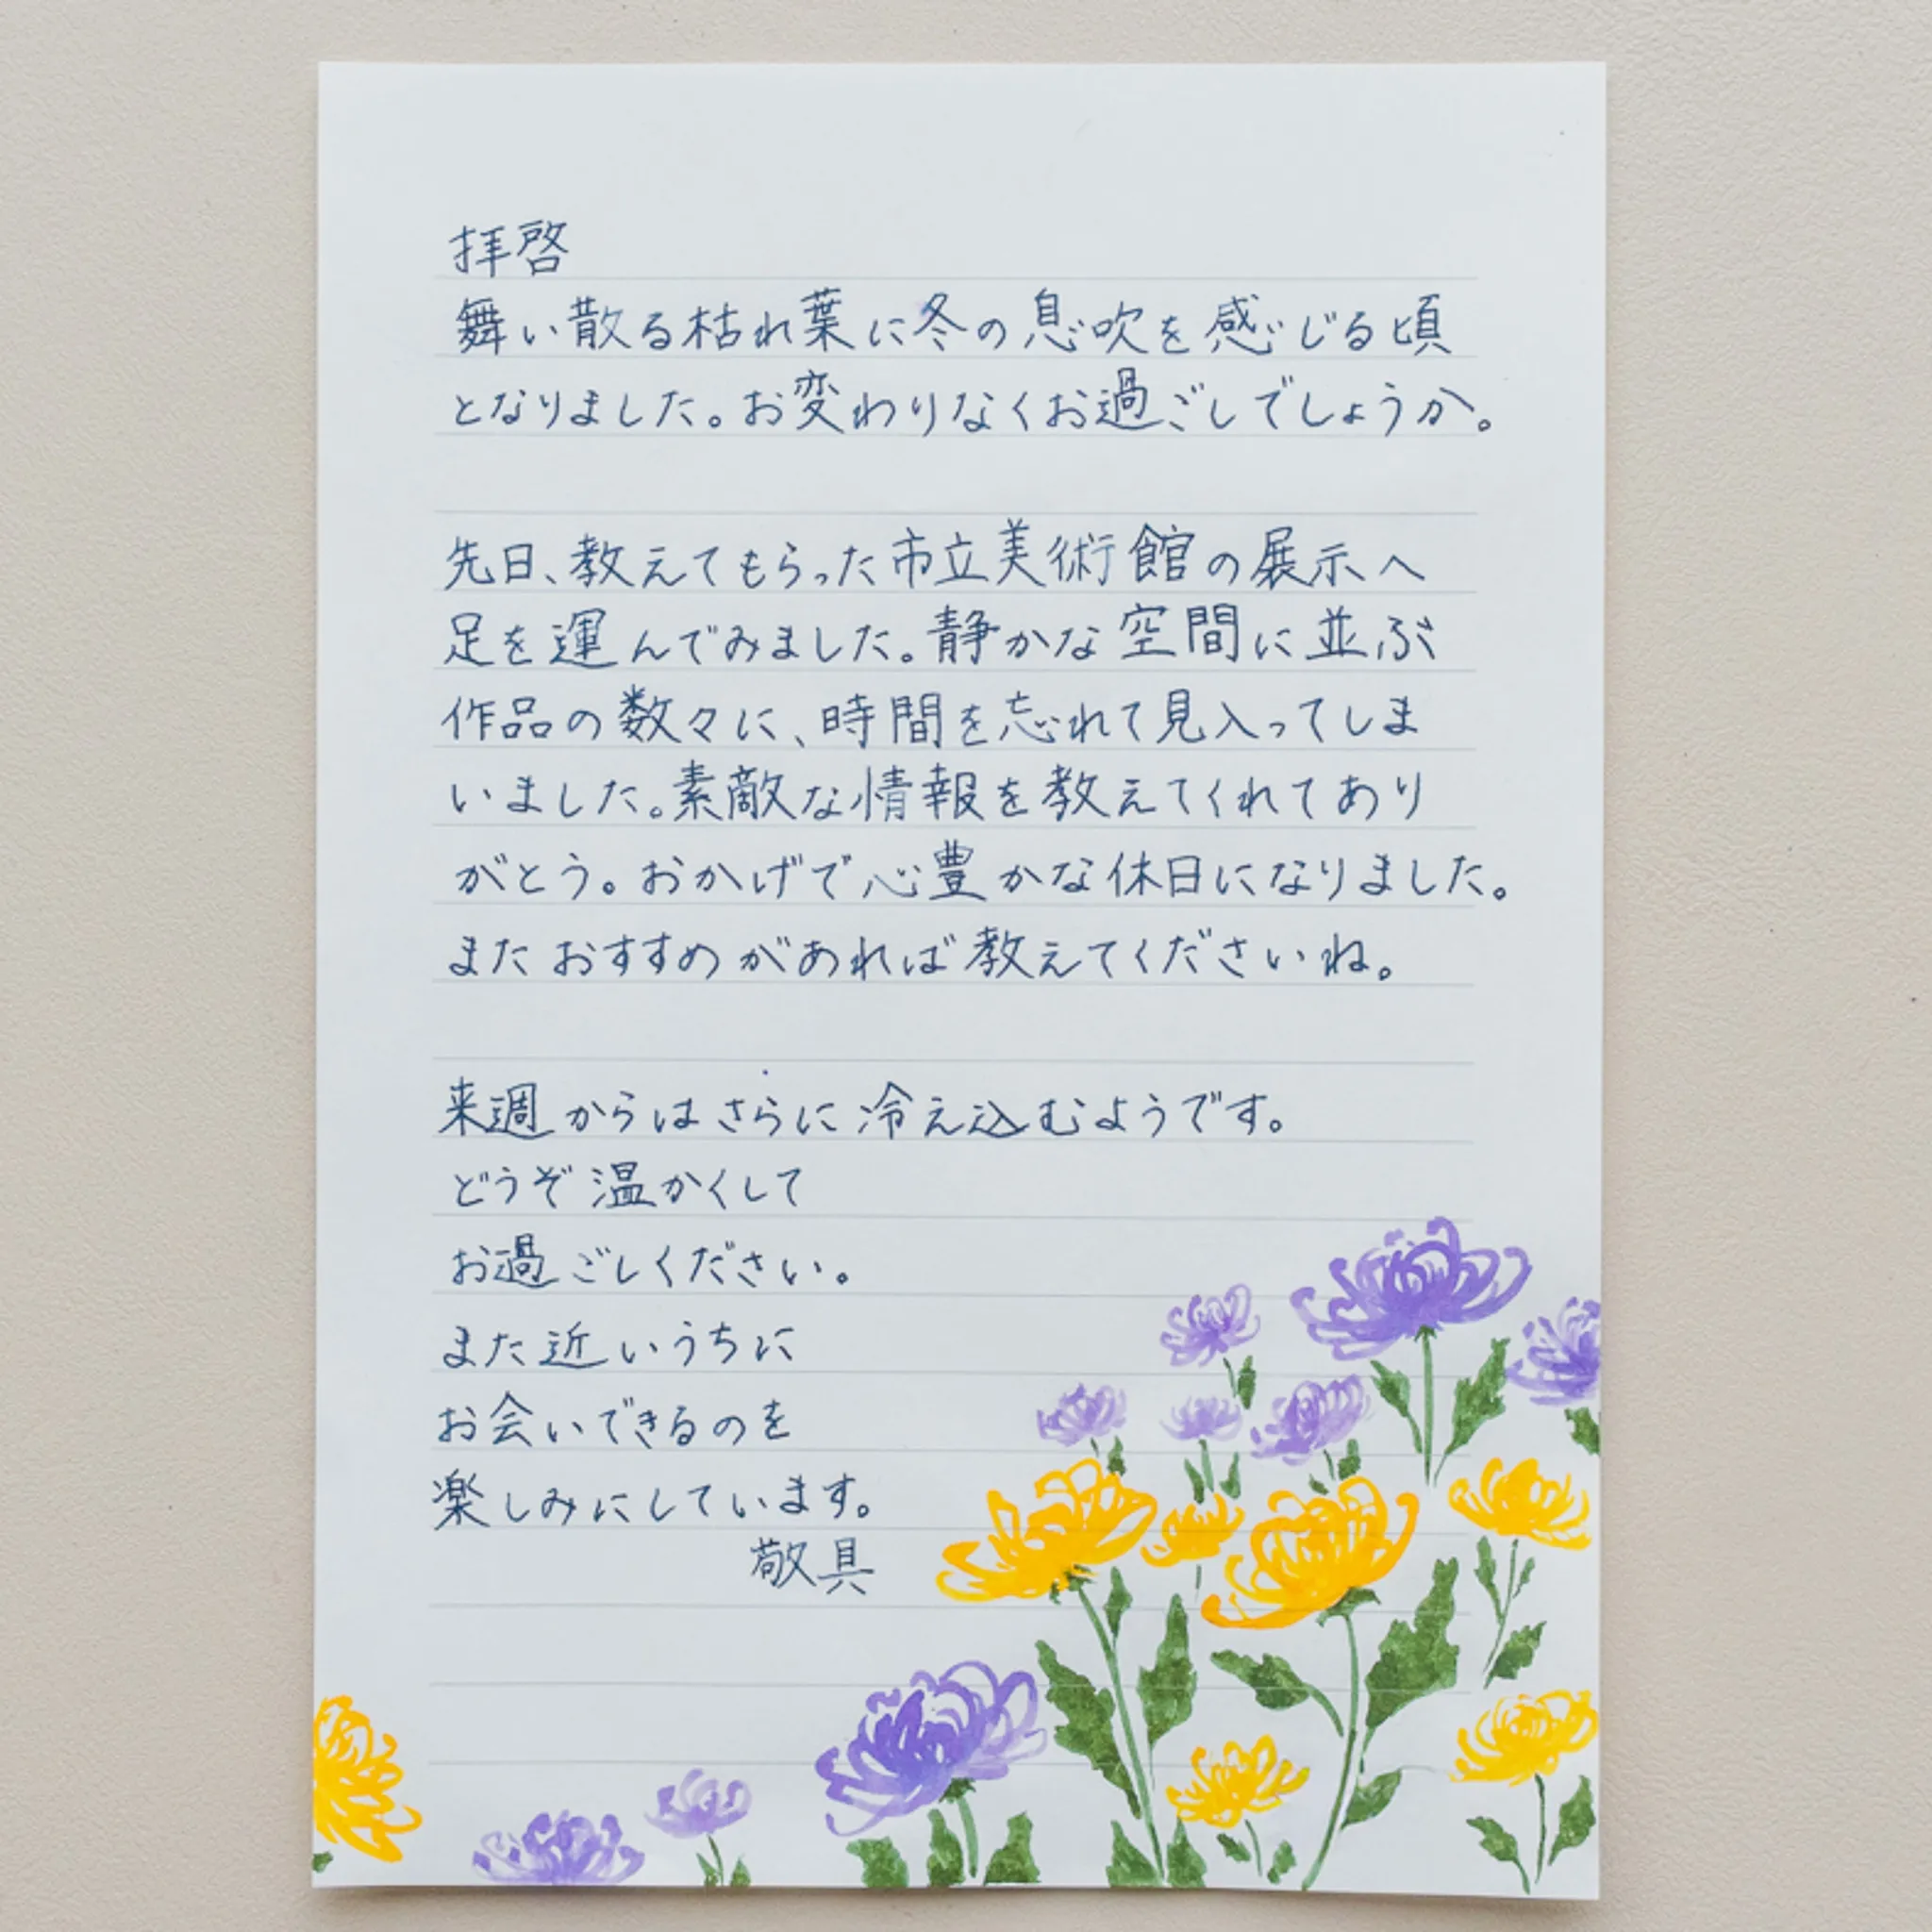 拝啓
舞い散る枯れ葉に冬の息吹を感じる頃
となりました。お変わりなくお過ごしでしょうか。
先日、教えてもらった市立美術館の展示へ
足を運んでみました。静かな空間に並ぶ
作品の数々に、時間を忘れて見入ってしま
いました。素敵な情報を教えてくれてあり
がとう。おかげで心豊かな休日になりました。
またおすすめがあれば教えてくださいね。
来週からはさらに冷え込むようです。
どうぞ温かくして
お過ごしください。
また近いうちに
お会いできるのを
楽しみにしています。
敬具